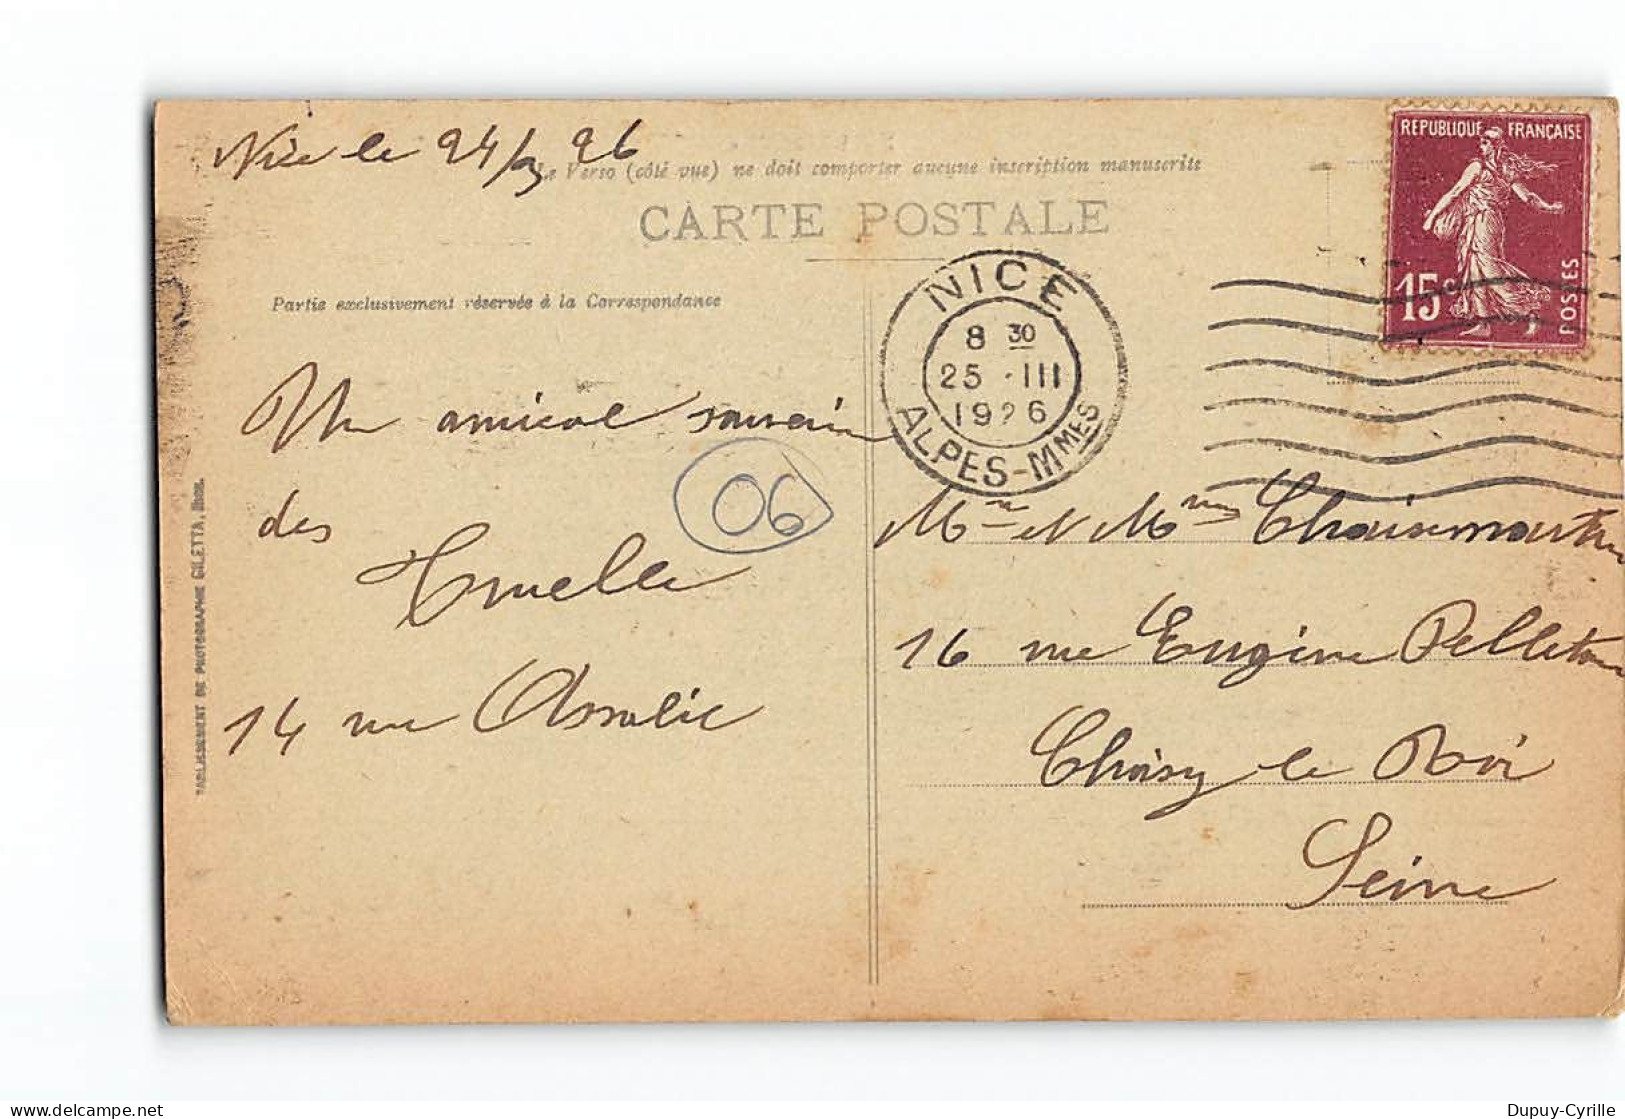 Nice le 24/3 26
Le Verso (côté vue) ne doit comporter aucune inscription manuscrite
CARTE POSTALE
Partie exclusivement réservée à la Correspondance
REPUBLIQUE FRANÇAISE
15c
POSTES
NICE
8 30
25 · III
1926
ALPES-MMES
Un amical souvenir
des
Truelle
14 rue Assalit
06
ETABLISSEMENT DE PHOTOGRAPHIE GILETTA, Nice.
Mr et Mme
16 rue Eugène Pelletan
Choisy le Roi
Seine
Dupuy-Cyrille